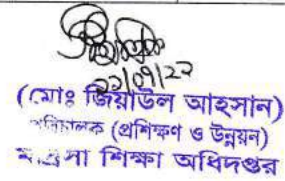 ২১/০৭/২২
(মোঃ জিয়াউল আহসান)
পরিচালক (প্রশিক্ষণ ও উন্নয়ন)
মাদ্রাসা শিক্ষা অধিদপ্তর